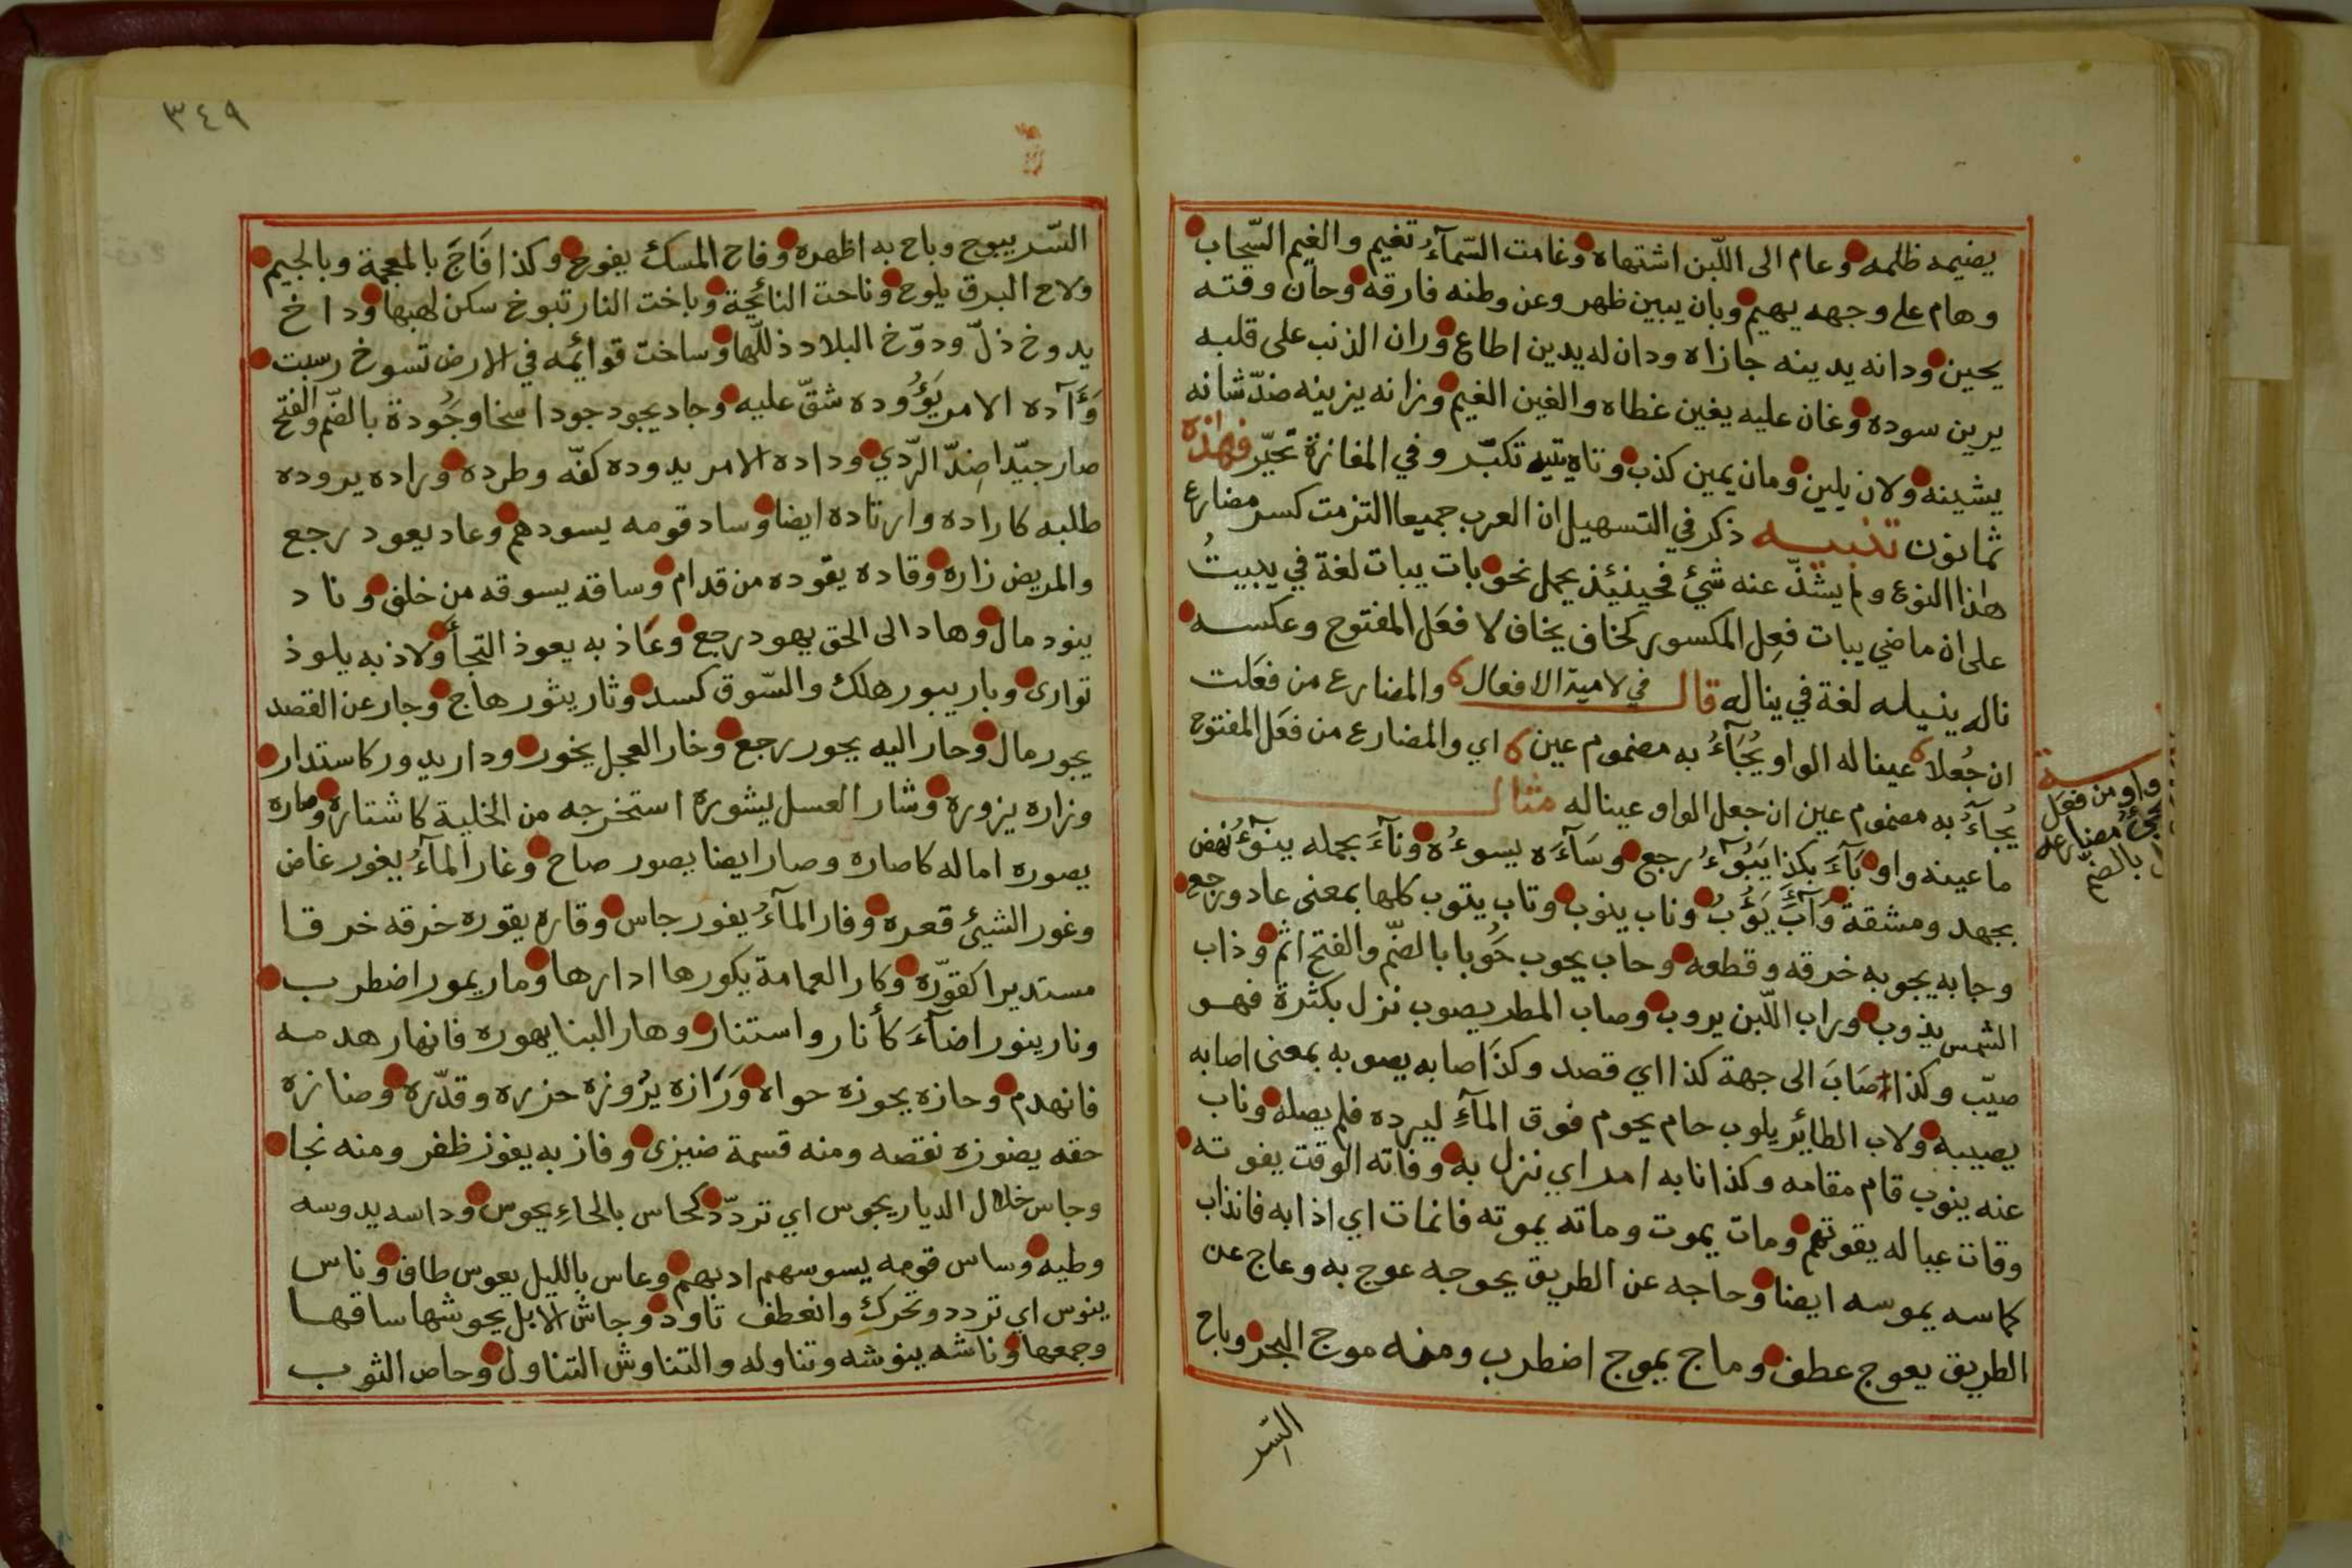 يضيمه ظلمه وعام الى اللّبن اشتهاه وغامت السّمآءُ تغيم والغيم السّحاب
وهام على وجهه يهيم وبان يبين ظهر وعن وطنه فارقه وحان وقته
يحين ودانه يدينه جازاه ودان له يدين اطاع وران الذنب على قلبه
يرين سوده وغان عليه يغين غطاه والغين الغيم وزانه يزينه ضدّ شانه
يشينه ولان يلين ومان يمين كذب وتاه يتيه تكبّر وفي المفازة تحيّر فهذه
ثمانون تنبيه ذكر في التسهيل ان العرب جميعا التزمت كسر مضارع
هذا النوع ولم يشذّ عنه شيٌ فحينئذ يحمل نحو بات يبات لغة في يبيتُ
على ان ماضي يبات فعِل المكسور كخاف يخاف لا فعَل المفتوح وعكسه
ناله ينيله لغة في يناله قال في لامية الافعال والمضارع من فعَلت
ان جُعلا عينا له الواو يُجَآءُ به مضموم عين اي والمضارع من فعَل المفتوح
يُجآءُ به مضموم عين ان جعل الواو عينا له مثال
ما عينه واو بَآءَ بكذا يَبُوءُ رجع وسَآءَه يسوءُه ونآءَ بحمله ينوءُ نهض
بجهد ومشقة وَآبَ يَؤُبُ وناب ينوب وتاب يتوب كلها بمعنى عاد ورجع
وجابه يجوبه خرقه وقطعه وحاب يحوب حَوُبا بالضّم والفتح اثم وذاب
الشمس يذوب وراب اللّبن يروب وصاب المطر يصوب نزل بكثرة فهو
صيّب وكذا صَابَ الى جهة كذا اي قصد وكذا صابه يصوبه بمعنى اصابه
يصيبه ولاب الطائر يلوب حام يحوم فوق المآءِ ليرده فلم يصله وناب
عنه ينوب قام مقامه وكذا نابه امر اي نزل به وفاته الوقت يفوته
وقات عياله يقوتهم ومات يموت وماته يموته فانمات اي اذابه فانذاب
كماسه يموسه ايضا وحاجه عن الطريق يحوجه عوج به وعاج عن
الطريق يعوج عطف وماج يموج اضطرب ومنه موج البحر وباح
السّر
واو من فعَل
مضارعه
بالضم
٣٤٩
السّر يبوح وباح به اظهره وفاح المسك يفوح وكذا فَاجَ بالمعجمة وبالجيم
ولاح البرق يلوح وناحت النائحة وباخت النار تبوخ سكن لهبها وداخ
يدوخ ذلّ ودوّخ البلاد ذللّها وساخت قوائمه في الارض تسوخ رسبت
وَآده الامر يَؤُوده شقّ عليه وجاد يجود جودا سخا وجُودة بالضّم والفتح
صار جيّدا ضِدّ الرّدي وداده الامر يدوده كفّه وطرده وراده يروده
طلبه كاراده وارتاده ايضا وساد قومه يسودهم وعاد يعود رجع
والمريض زاره وقاده يقوده من قدام وساقه يسوقه من خلف وناد
ينود مال وهاد الى الحق يهود رجع وعَاذ به يعوذ التجأ ولاذ به يلوذ
توارى وبار يبور هلك والسّوق كسد وثار يثور هاج وجار عن القصد
يجور مال وحار اليه يحور رجع وخار العجل يخور ودار يدور كاستدار
وزاره يزوره وشار العسل يشوره استخرجه من الخلية كاشتاره وصاره
يصوره اماله كاصاره وصار ايضا يصور صاح وغار المآءُ يغور غاض
وغور الشيئ قعره وفار المآءُ يفور جاس وقاره يقوره خرقه خرقا
مستديرا كقوّره وكار العمامة يكورها ادارها ومار يمور اضطرب
ونار ينور اضآءَ كأنار واستنار وهار البنا يهوره فانهار هدمه
فانهدم وحازه يحوزه حواه وَرَازه يرُوزه حزره وقدّره وضازه
حقه يضوزه نقصه ومنه قسمة ضيزى وفاز به يفوز ظفر ومنه نجا
وجاس خلال الديار يجوس اي تردّد كحاس بالحاءِ يحوس وداسه يدوسه
وطيه وساس قومه يسوسهم ادبهم وعاس بالليل يعوس طاف وناس
ينوس اي تردد وتحرك وانعطف تاود وجاش الابل يحوشها ساقها
وجمعها وناشه ينوشه وتناوله والتناوش التناول وحاص الثوب